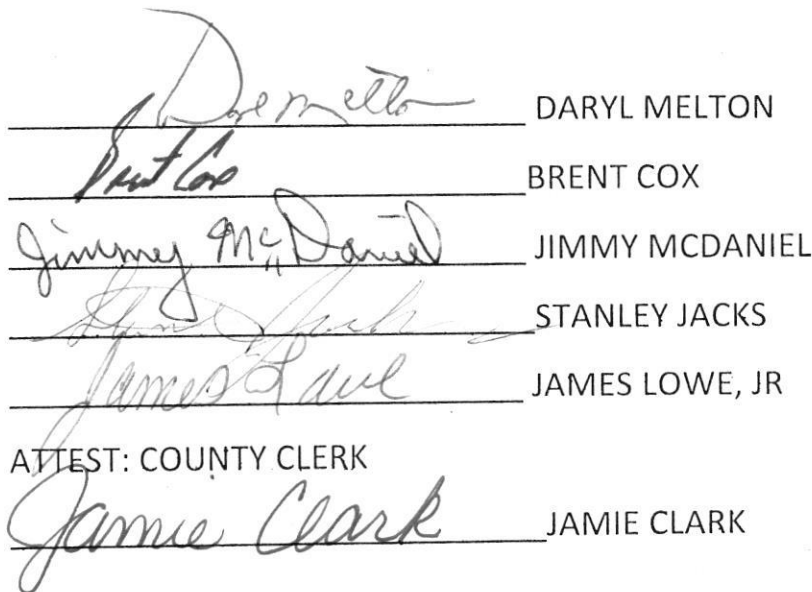 Dave Melton DARYL MELTON
Brent Cox BRENT COX
Jimmy McDaniel JIMMY MCDANIEL
STANLEY JACKS
James Lowe JAMES LOWE, JR
ATTEST: COUNTY CLERK
Jamie Clark JAMIE CLARK